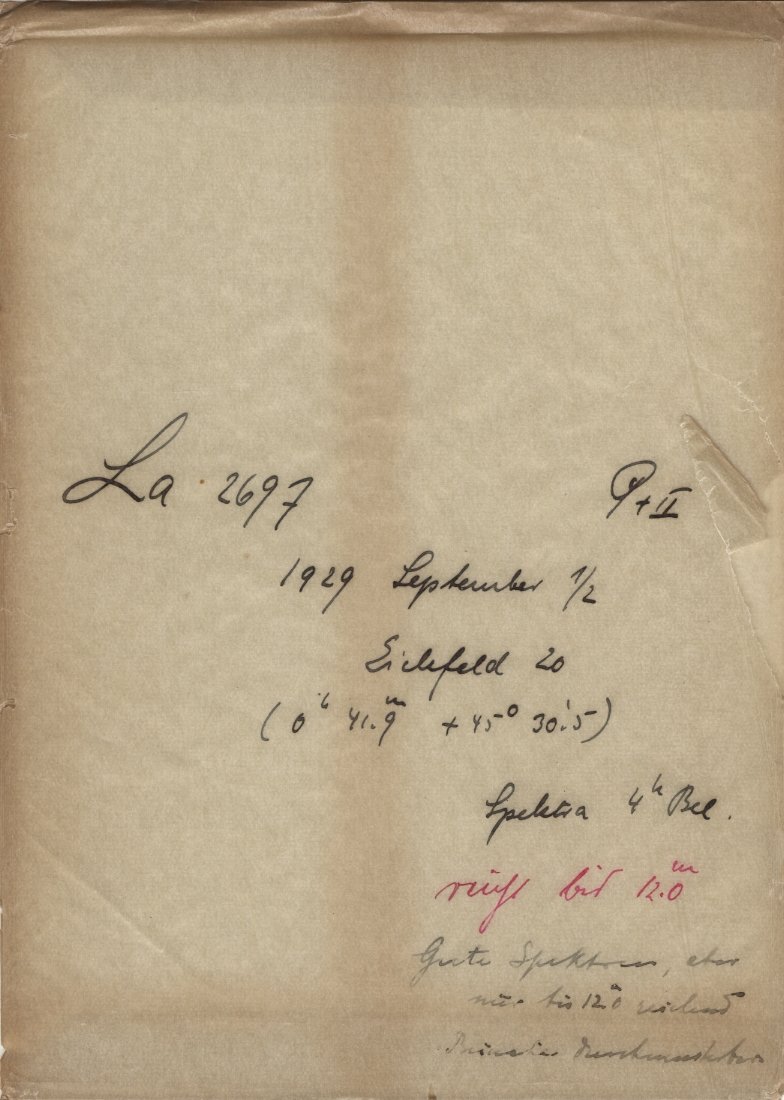 La 2697 P+II
1929 September 1/2
Eichfeld 20
(0ʰ 41.9ᵐ +45° 30!5)
Spektra 4ʰ Bel.
reicht bis 12.0ᵐ
Gute Spektren, aber
nur bis 12.0ᵐ reichend